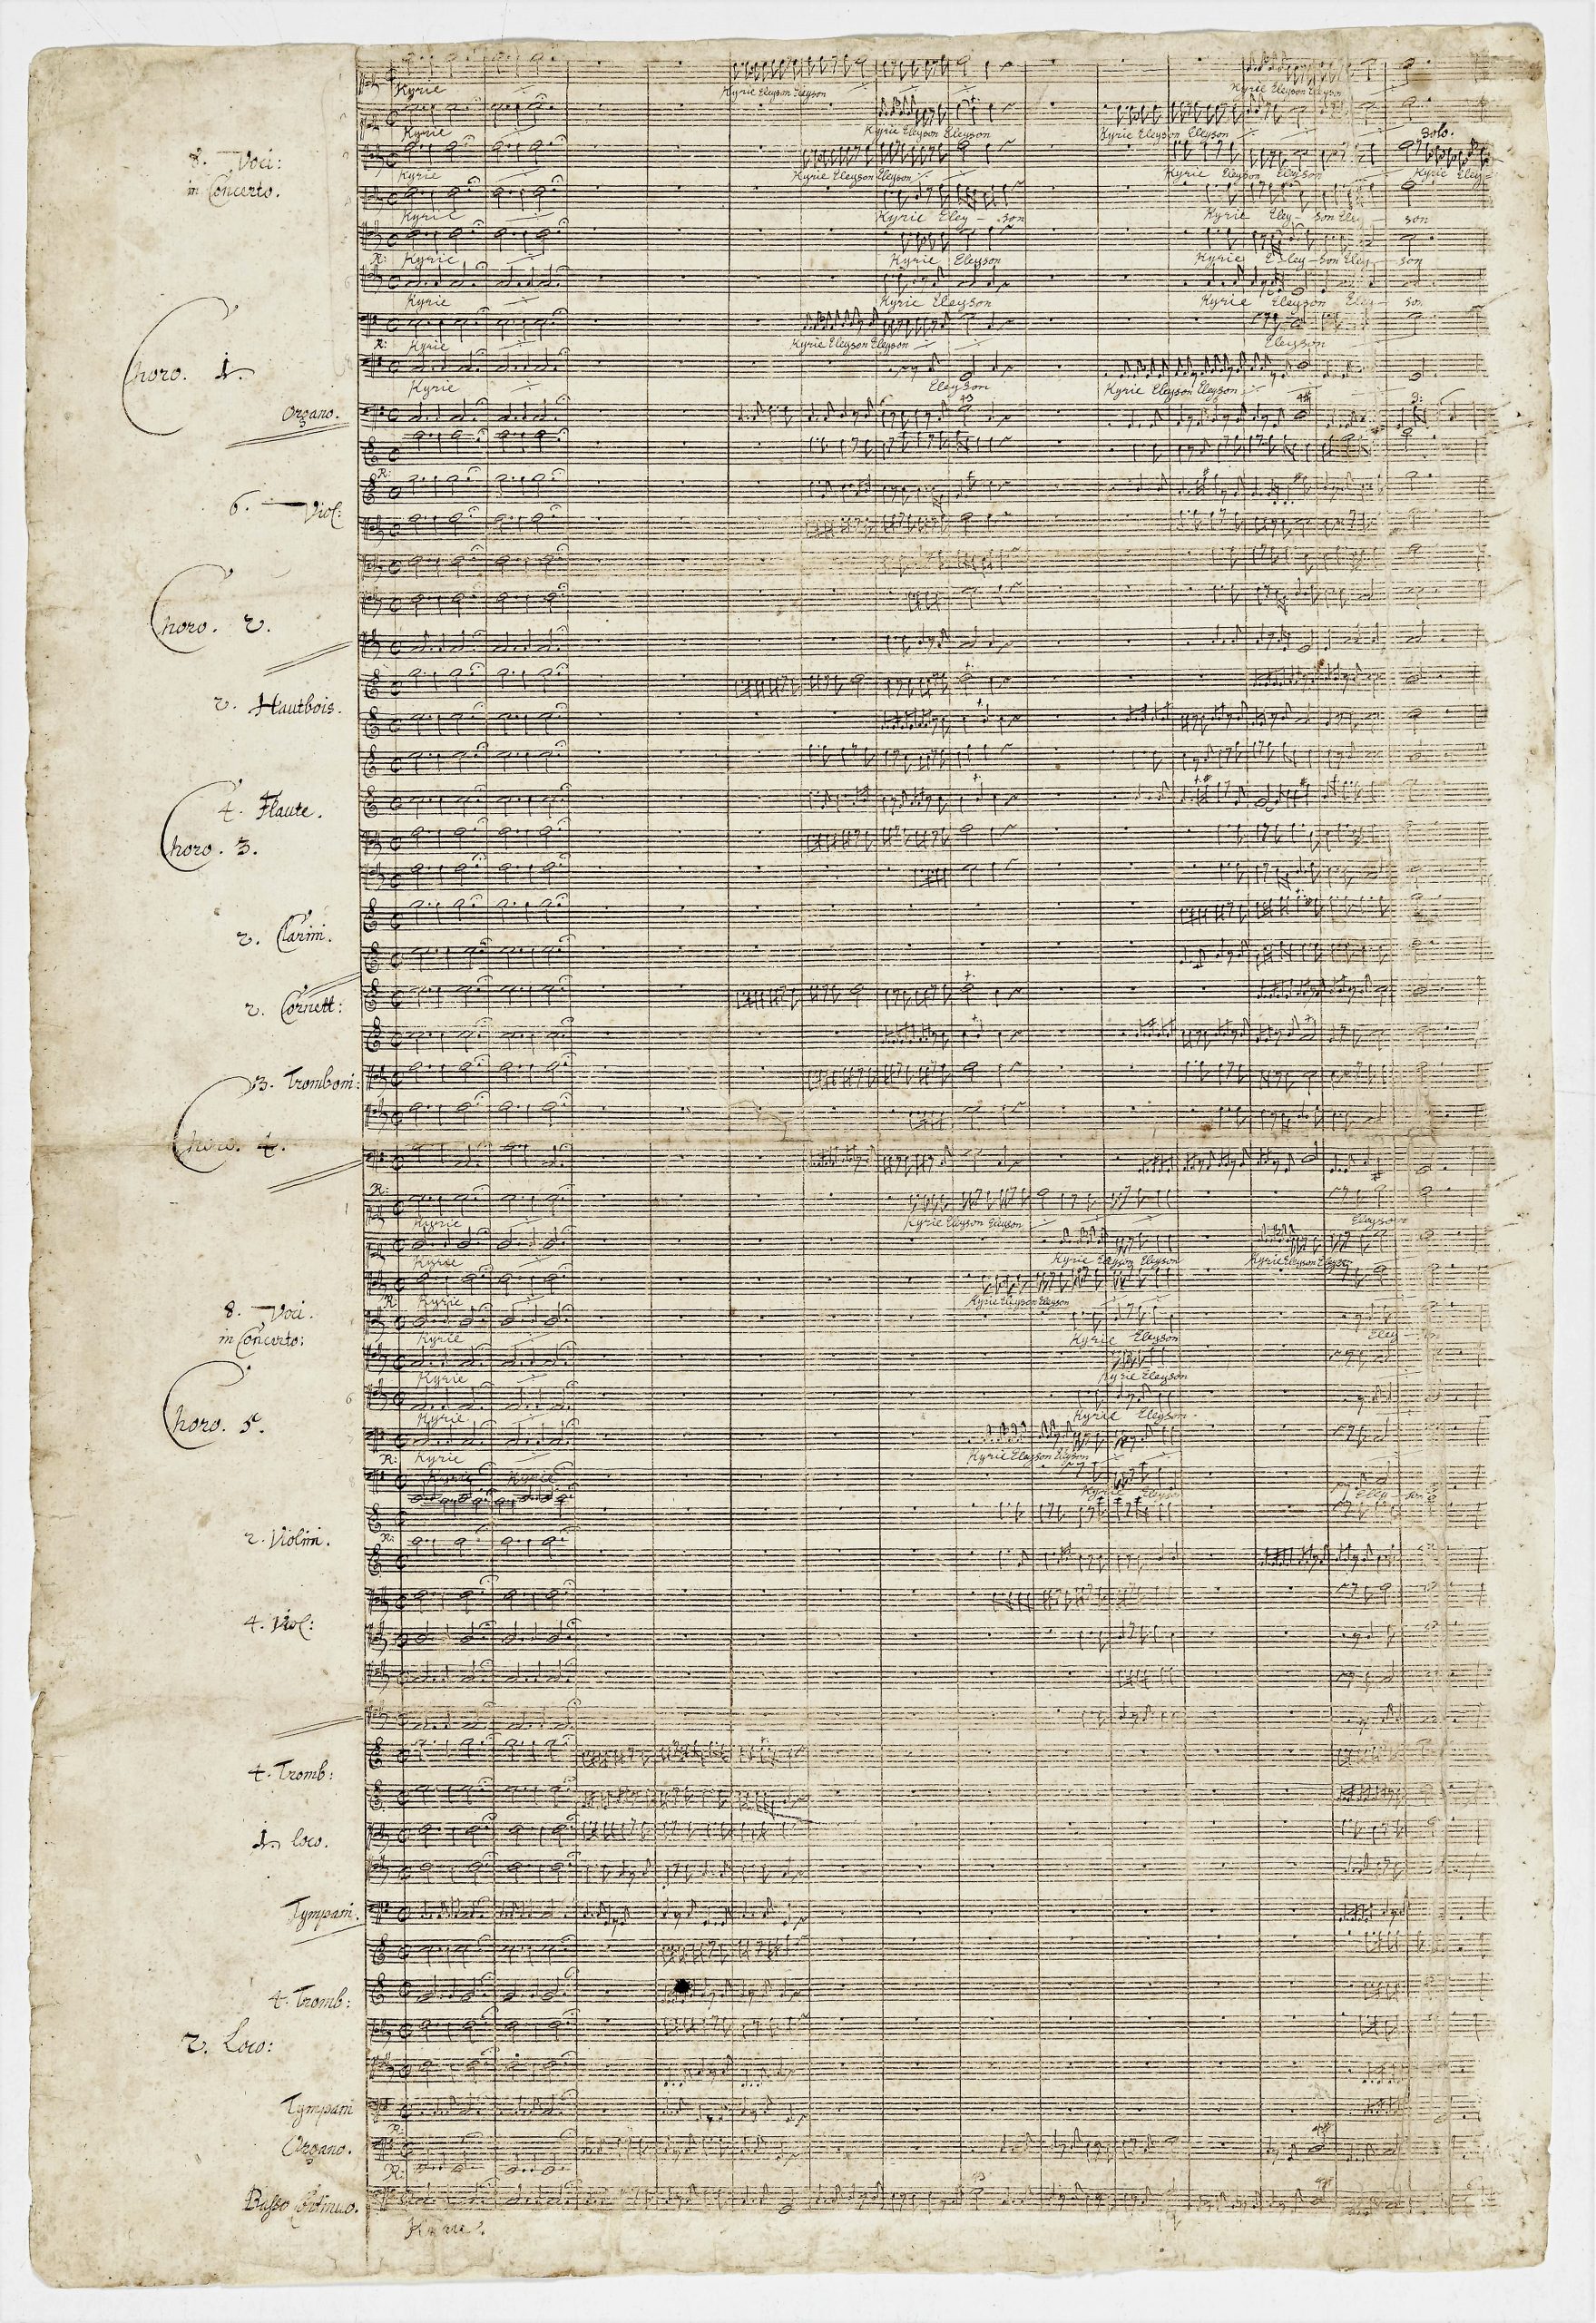 Kyrie
Kyrie Eleyson Eleyson
Kyrie Eleyson Eleyson
Kyrie
Kyrie Eleyson Eleyson
Kyrie Eleyson Eleyson
Solo.
8. Voci:
in Concerto.
Kyrie
Kyrie Eleyson Eleyson
Kyrie Eleyson Eleyson
Kyrie Eley=
Kyrie
Kyrie Eley - son
Kyrie Eley - son Eley - son
R: Kyrie
Kyrie Eleyson
Kyrie E - ley - son Eley - son
Kyrie
Kyrie Eleyson
Kyrie Eleyson Eley - son
R: Kyrie
Kyrie Eleyson Eleyson
Eleyson
Choro. 1.
Kyrie
Eleyson
Kyrie Eleyson Eleyson
43
4#
9:
Organo.
R:
6. Viol:
Choro. 2.
2. Hautbois.
4. Flaute.
Choro. 3.
2. Clarini.
2. Cornett:
3. Tromboni:
Choro. 4.
R:
Kyrie
Kyrie Eleyson Eleyson
Eleyson
Kyrie
Kyrie Eleyson Eleyson
Kyrie Eleyson Eleyson
R: Kyrie
Kyrie Eleyson Eleyson
8. Voci.
in Concerto:
Kyrie
Kyrie Eleyson
Kyrie
Kyrie Eleyson
6
Kyrie
Kyrie Eleyson.
Choro. 5.
R: Kyrie
Kyrie Eleyson Eleyson
Kyrie Kyrie
Kyrie
Eley - son
R:
2. Violini.
4. Viol:
4. Tromb:
1. loco.
Tympani.
4. Tromb:
2. Loco:
Tympani
R:
Organo.
R:
Basso Continuo.
Kyrie.